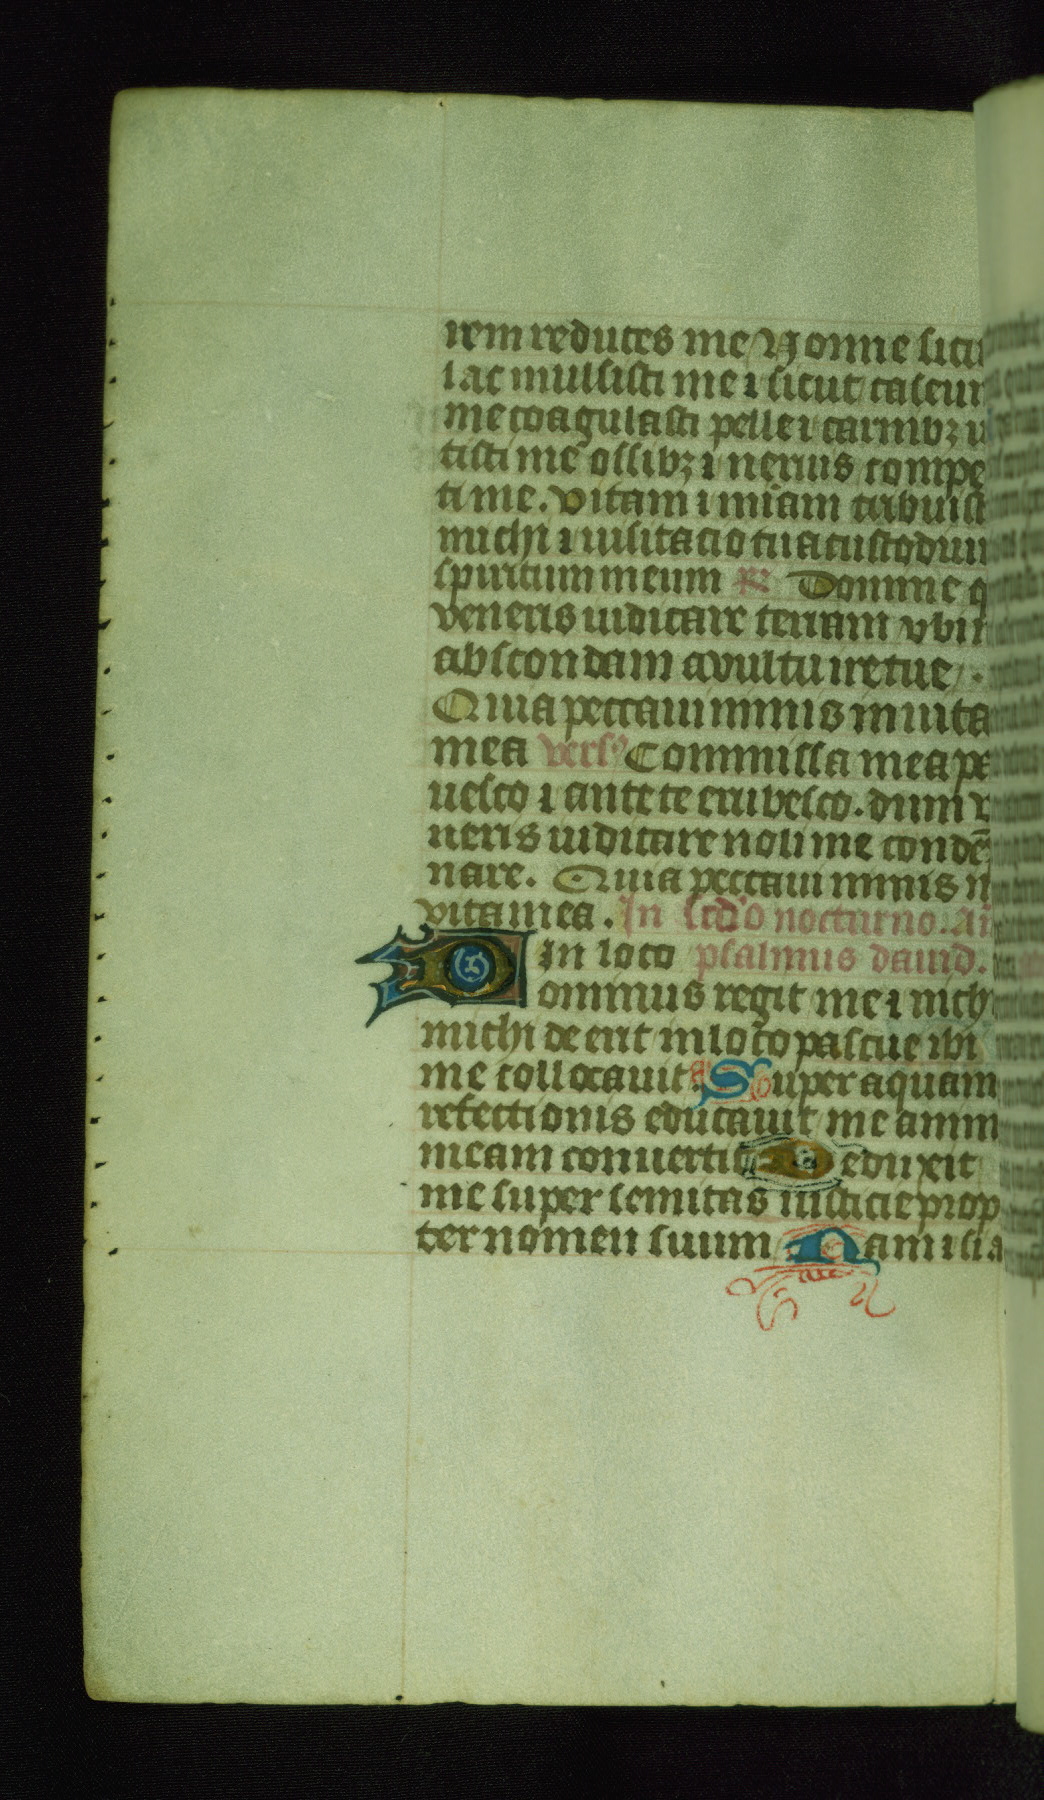 rem reduces me Nonne sicu
lac mulsisti me ⁊ sicut caseum
me coagulasti pelle ⁊ carnibꝫ u
tisti me ossibꝫ ⁊ neruis compe
ti me. vitam ⁊ miam tribuist
michi ⁊ uisitacio tua custodiui
spiritum meum R̃ Domine q
veneris iudicare terram vbi
abscondam a vultu ire tue
Quia peccaui nimis in uita
mea vers Commissa mea pa
uesco ⁊ ante te erubesco. dum v
neris iudicare noli me condē
nare. Quia peccaui nimis n
vita mea. In scdo nocturno. an
In loco psalmus dauid.
Dominus regit me ⁊ nich
michi de erit in loco pascue ibi
me collocauit. Super aquam
refectionis educauit me anim
meam conuertit Deduxit
me super semitas iusticie prop
ter nomen suum Nam ⁊ si a